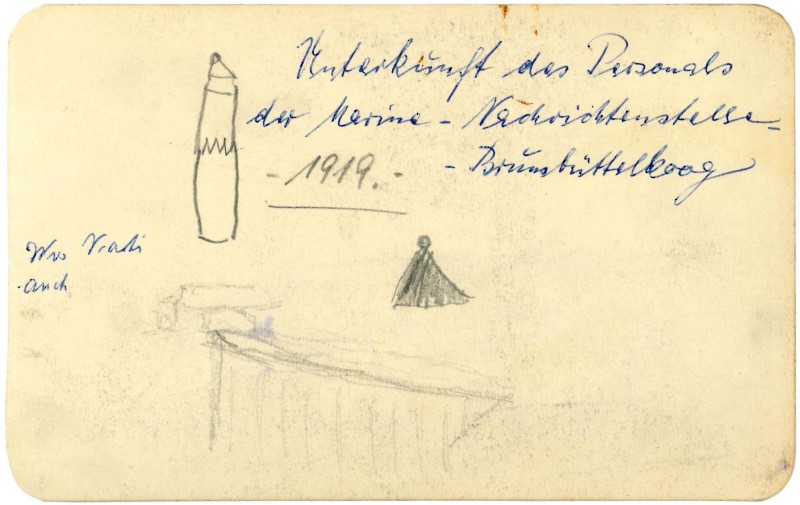 Unterkunft des Personals
der Marine - Nachrichtenstelle -
- 1919. -
- Brunsbüttelkoog
Wo
auch